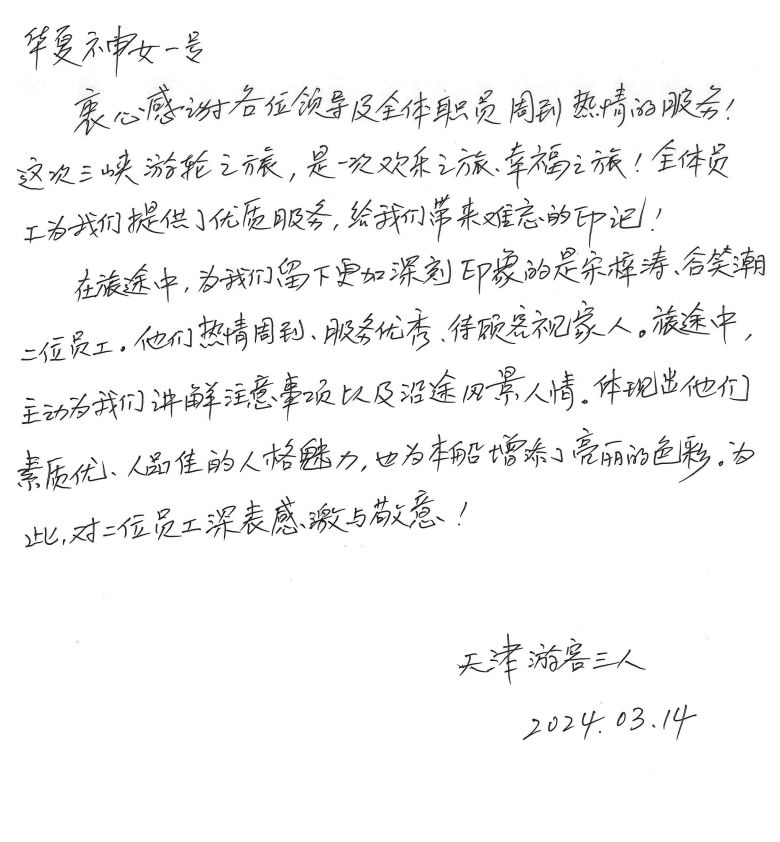 华夏神女一号
衷心感谢各位领导及全体职员周到热情的服务!
这次三峡游轮之旅,是一次欢乐之旅、幸福之旅!全体员
工为我们提供了优质服务,给我们带来难忘的印记!
在旅途中,为我们留下更加深刻印象的是宋梓涛、谷笑潮
二位员工。他们热情周到、服务优秀、待顾客视家人。旅途中,
主动为我们讲解注意事项以及沿途风景人情。体现出他们
素质优、人品佳的人格魅力,也为本船增添了亮丽的色彩。为
此,对二位员工深表感激与敬意!
天津游客三人
2024.03.14